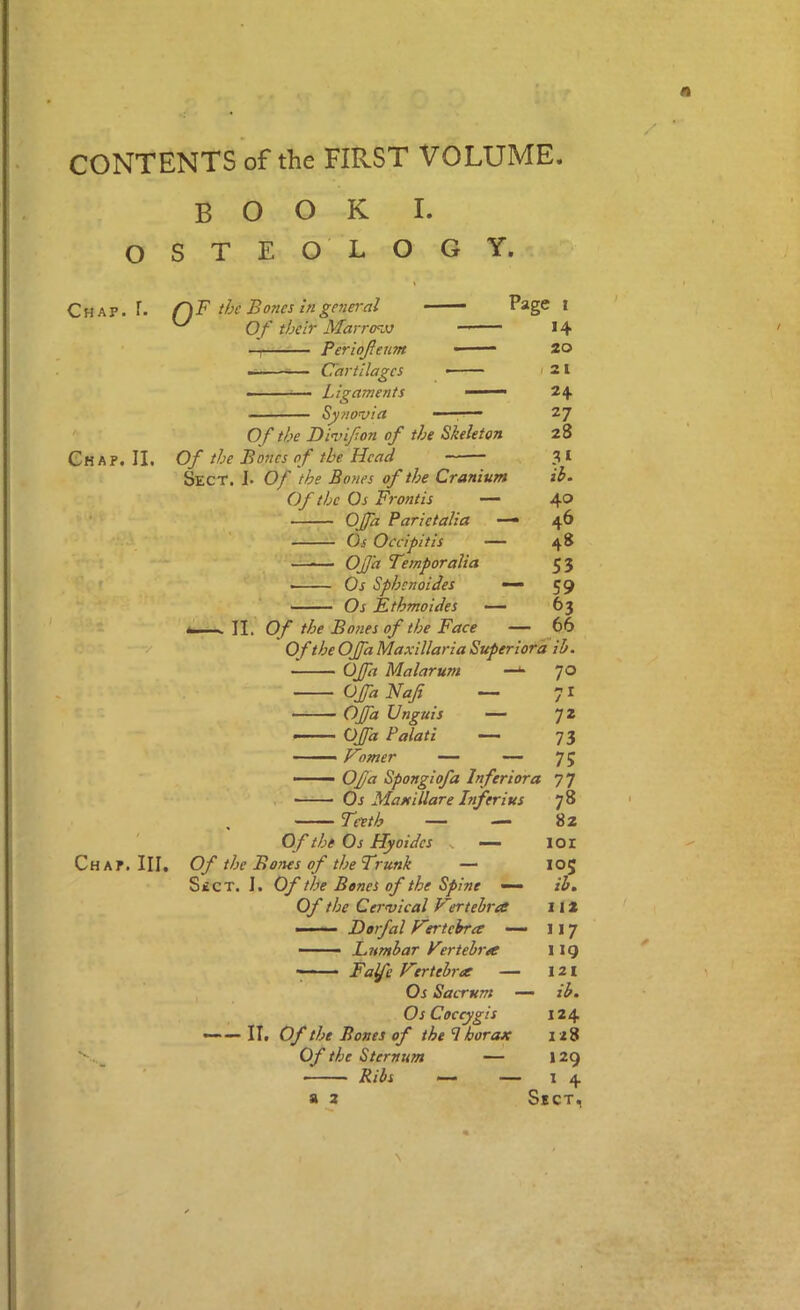 CONTENTS of the FIRST VOLUME.
BOOK I.
OSTEOLOGY.
CHAP. I. OF the Bones in general —— Page 1
Of their Marrow —— 14
—— Perioſteum —— 20
—— Cartilages —— 21
—— Ligaments —— 24
—— Synovia —— 27
Of the Diviſion of the Skeleton 28
CHAP. II. Of the Bones of the Head —— 31
SECT. I. Of the Bones of the Cranium ib.
Of the Os Frontis — 40
—— Oſſa Parietalia — 46
—— Os Occipitis — 48
—— Oſſa Temporalia 53
—— Os Sphenoides — 59
—— Os Ethmoides — 63
——. II. Of the Bones of the Face — 66
Of the Oſſa Maxillaria Superiora ib.
—— Oſſa Malarum — 70
—— Oſſa Naſi — 71
—— Oſſa Unguis — 72
—— Oſſa Palati — 73
—— Vomer — — 75
—— Oſſa Spongioſa Inferiora 77
—— Os Maxillare Inferius 78
—— Teeth — — 82
Of the Os Hyoides — 101
CHAP. III. Of the Bones of the Trunk — 105
SECT. I. Of the Bones of the Spine — ib.
Of the Cervical Vertebræ 112
—— Dorſal Vertebræ — 117
—— Lumbar Vertebræ 119
—— Falſe Vertebræ — 121
Os Sacrum — ib.
Os Coccygis 124
—— II. Of the Bones of the Thorax 128
Of the Sternum — 129
—— Ribs — — 1 4
a 2 SECT,